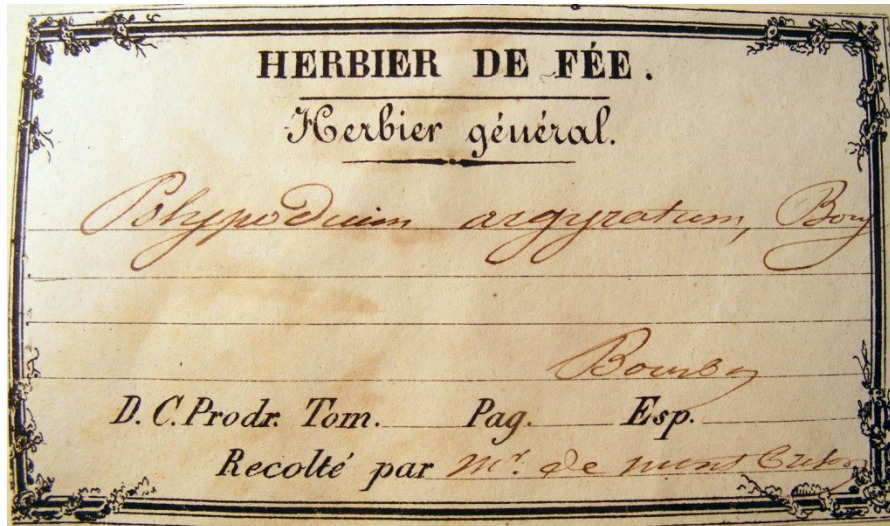 HERBIER DE FÉE.
Herbier général.
Polypodium argyratum, Bory
Bourbon
D. C. Prodr. Tom. Pag. Esp.
Recolté par Mr. de